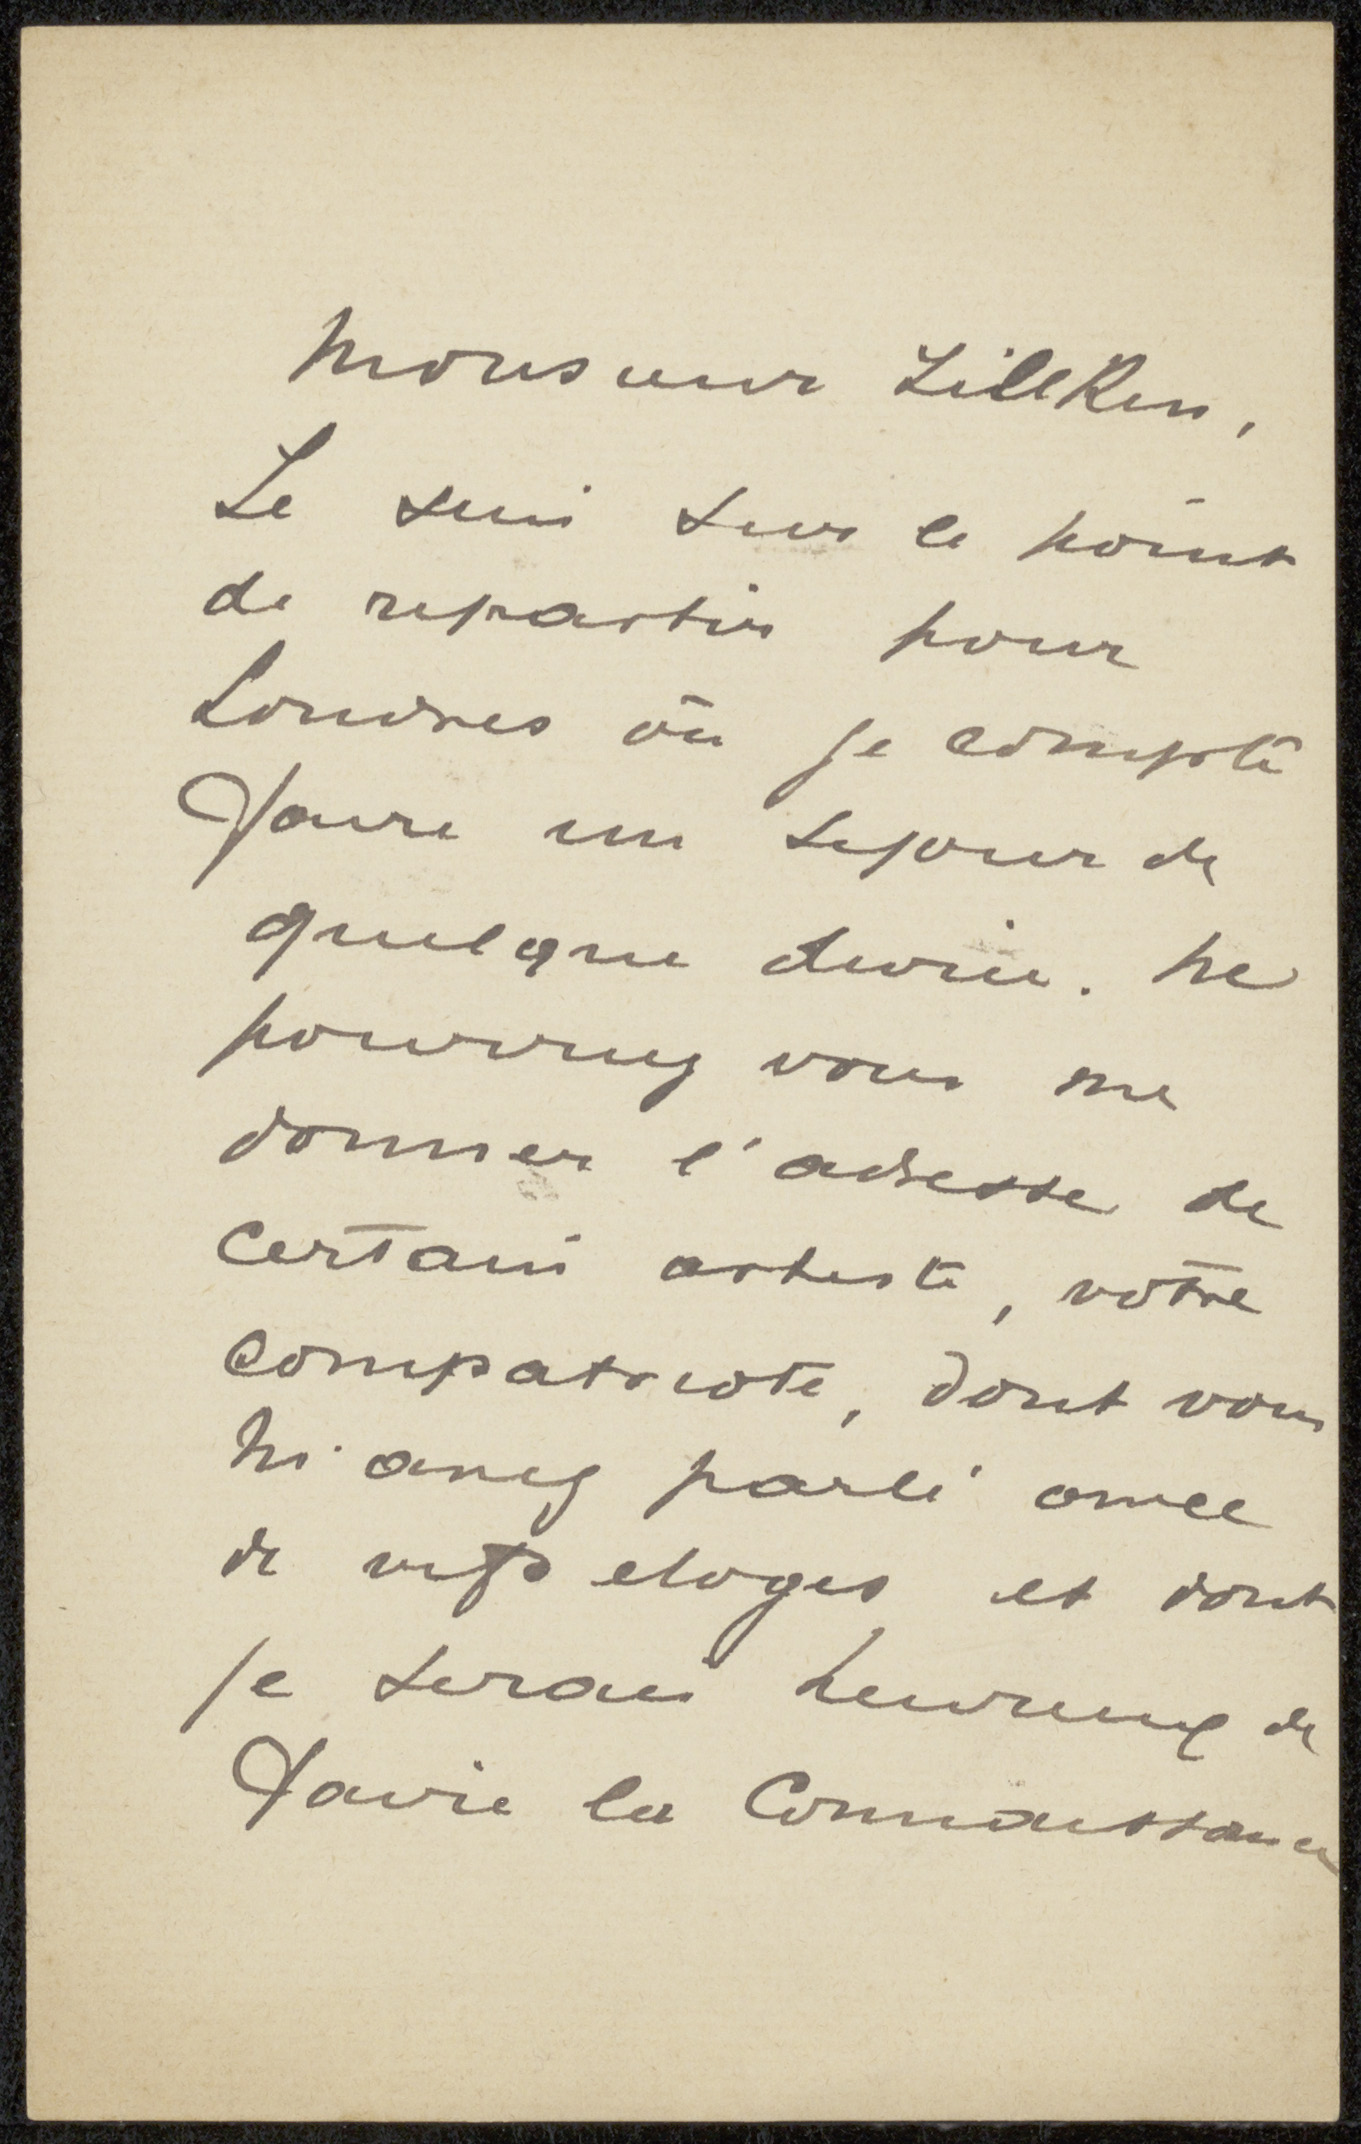 Monsieur Zilcken,
Je suis sur le point
de repartir pour
Londres où je compte
faire un sejour de
quelque durée. Ne
pourriez vous me
donner l'adresse de
certain artiste, votre
compatriote, dont vous
m'avez parlé avec
de vifs eloges et dont
je serais heureux de
faire la connaissance